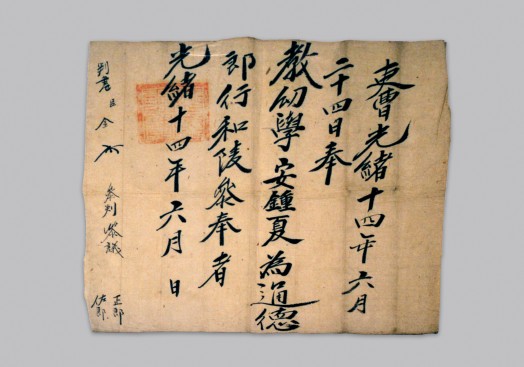 吏曹光緒十四年六月
二十四日奉
教幼學安鍾夏為通德
郎行和陵參奉者
光緒十四年六月 日
判書臣金
參判 參議
正郎
佐郎